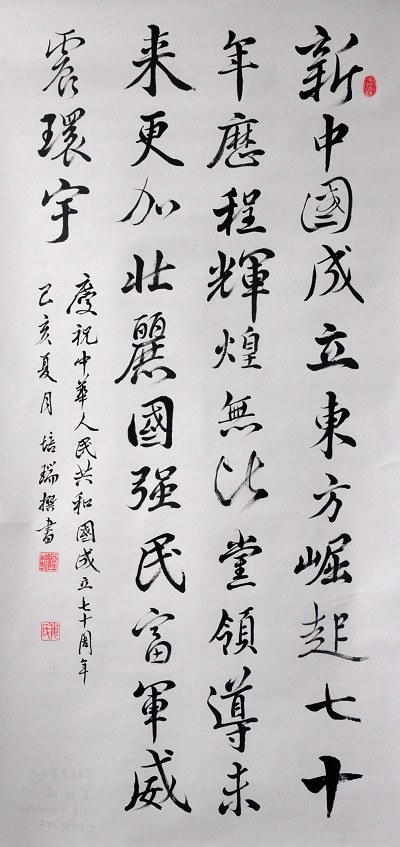 新中國成立東方崛起七十
年歷程輝煌無比黨領導未
来更加壯麗國强民富軍威
震環宇
慶祝中華人民共和國成立七十周年
己亥夏月培瑞撰書